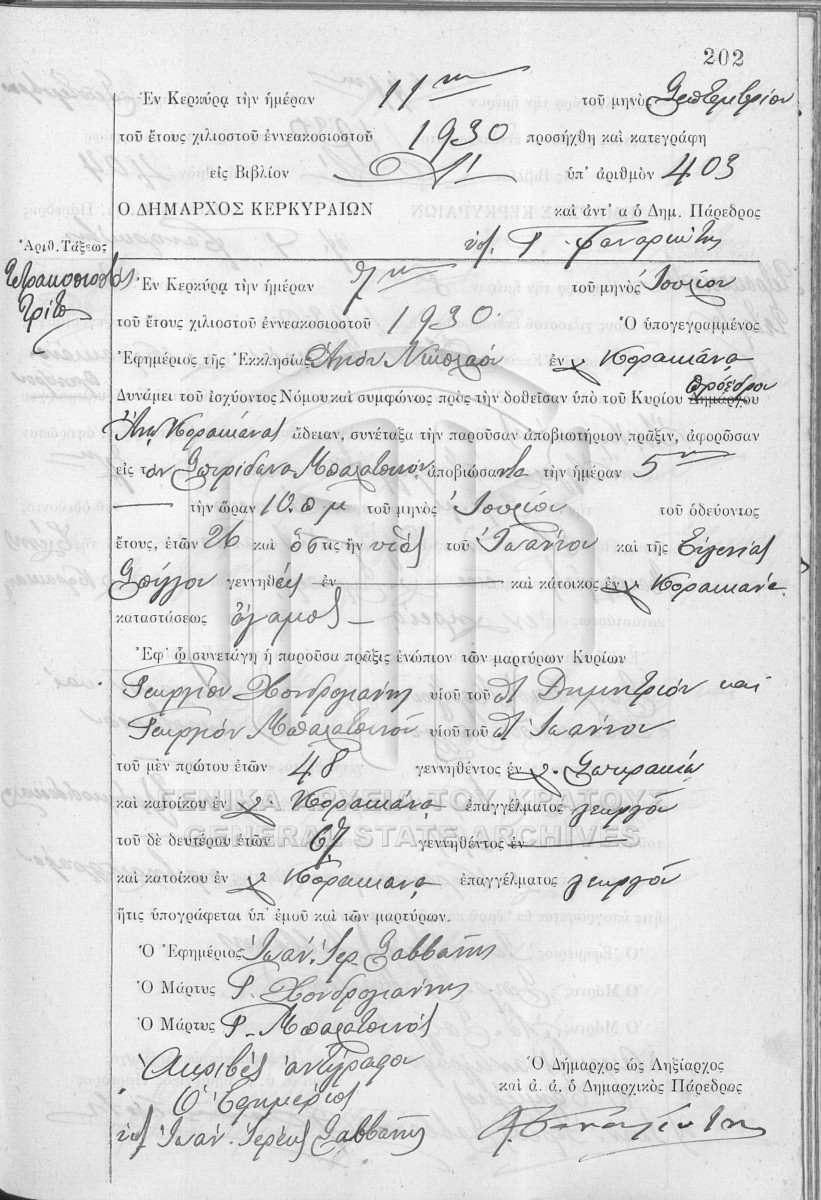 202
Ἐν Κερκύρᾳ τὴν ἡμέραν 11ην τοῦ μηνὸς Σεπτεμβρίου
τοῦ ἔτους χιλιοστοῦ ἐννεακοσιοστοῦ 1930 προσήχθη καὶ κατεγράφη
εἰς Βιβλίον ὑπ' ἀριθμὸν 403
Ο ΔΗΜΑΡΧΟΣ ΚΕΡΚΥΡΑΙΩΝ καὶ ἀντ' α ὁ Δημ. Πάρεδρος
Ἀριθ. Τάξεως
Τετρακοσιοστὸς
Τρίτο
Ἐν Κερκύρᾳ τὴν ἡμέραν 7ην τοῦ μηνὸς Ἰουλίου
τοῦ ἔτους χιλιοστοῦ ἐννεακοσιοστοῦ 1930 Ὁ ὑπογεγραμμένος
Ἐφημέριος τῆς Ἐκκλησίας Ἁγίου Νικολάου ἐν χ. Κορακιάνα
Δυνάμει τοῦ ἰσχύοντος Νόμου καὶ συμφώνως πρὸς τὴν δοθεῖσαν ὑπὸ τοῦ Κυρίου Δημάρχου Προέδρου
Ἄνω Κορακιάνας ἄδειαν, συνέταξα τὴν παροῦσαν ἀποβιωτήριον πρᾶξιν, ἀφορῶσαν
εἰς τὸν Σπυρίδωνα Μπαλατσινὸν ἀποβιώσαντα τὴν ἡμέραν 5ην
τὴν ὥραν 10 π μ τοῦ μηνὸς Ἰουλίου τοῦ ὁδεύοντος
ἔτους, ἐτῶν 26 καὶ ὅστις ἦν υἱὸς τοῦ Ἰωάννου καὶ τῆς Εὐγενίας
γεννηθεὶς ἐν καὶ κάτοικος ἐν χ. Κορακιάνα
καταστάσεως ἄγαμος
Ἐφ' ᾧ συνετάγη ἡ παροῦσα πρᾶξις ἐνώπιον τῶν μαρτύρων Κυρίων
Γεωργίου Χονδρογιάννη υἱοῦ τοῦ Δημητρίου καὶ
Γεωργίου Μπαλατσινοῦ υἱοῦ τοῦ Ἰωάννου
τοῦ μὲν πρώτου ἐτῶν 48 γεννηθέντος ἐν χ. Σωκρακίῳ
καὶ κατοίκου ἐν χ. Κορακιάνα ἐπαγγέλματος γεωργοῦ
ΓΕΝΙΚΑ ΑΡΧΕΙΑ ΤΟΥ ΚΡΑΤΟΥΣ
τοῦ δὲ δευτέρου ἐτῶν 67 γεννηθέντος ἐν
GENERAL STATE ARCHIVES
καὶ κατοίκου ἐν χ. Κορακιάνα ἐπαγγέλματος γεωργοῦ
ἥτις ὑπογράφεται ὑπ' ἐμοῦ καὶ τῶν μαρτύρων.
Ὁ Ἐφημέριος Ἰωάν. Ἱερ. Σαββάνης
Ὁ Μάρτυς Γ. Χονδρογιάννης
Ὁ Μάρτυς Γ. Μπαλατσινός
Ἀκριβὲς ἀντίγραφον
Ὁ Ἐφημέριος
Ἰωάν. Ἱερεὺς Σαββάνης
Ὁ Δήμαρχος ὡς Ληξίαρχος
καὶ ἀ. ἀ. ὁ Δημαρχικὸς Πάρεδρος